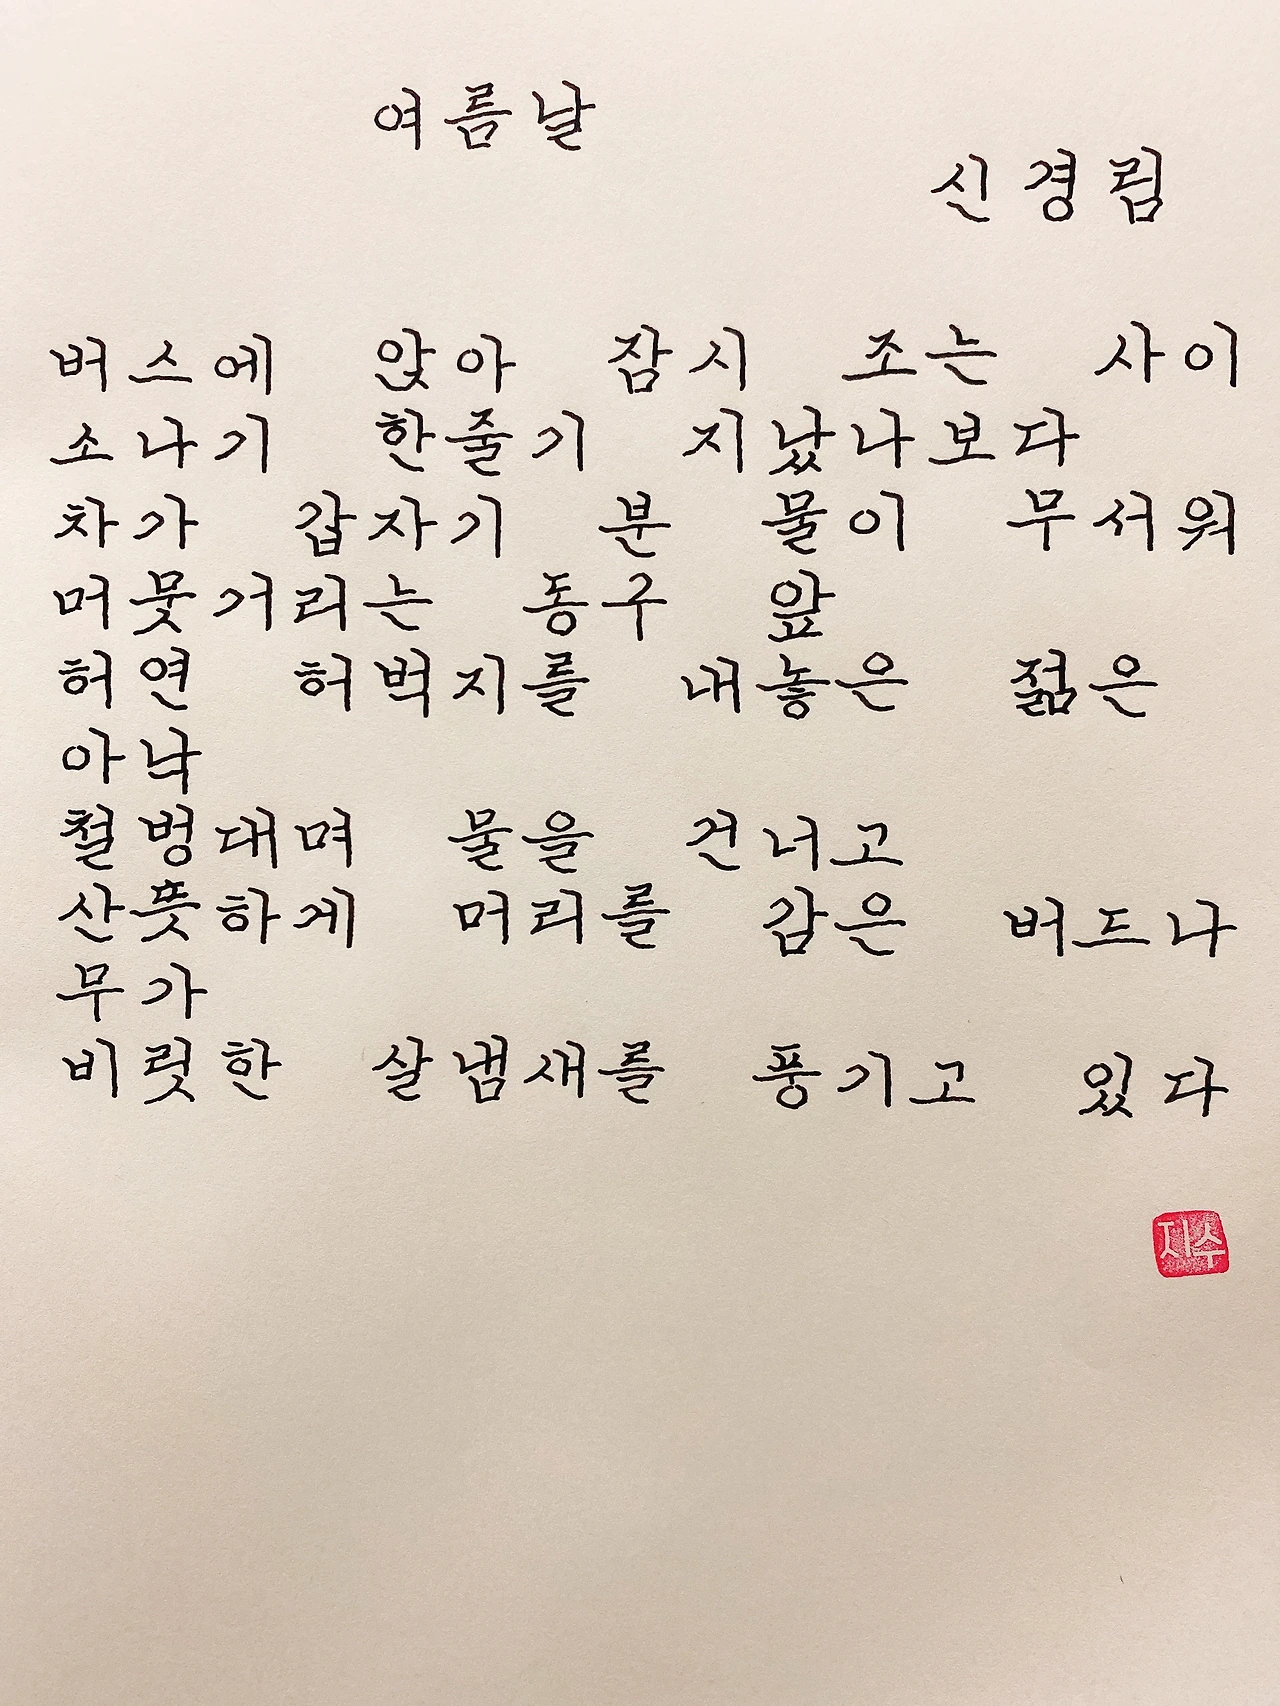 여름날
신경림
버스에 앉아 잠시 조는 사이
소나기 한줄기 지났나보다
차가 갑자기 분 물이 무서워
머뭇거리는 동구 앞
허연 허벅지를 내놓은 젊은
아낙
철벙대며 물을 건너고
산뜻하게 머리를 감은 버드나
무가
비릿한 살냄새를 풍기고 있다
지수